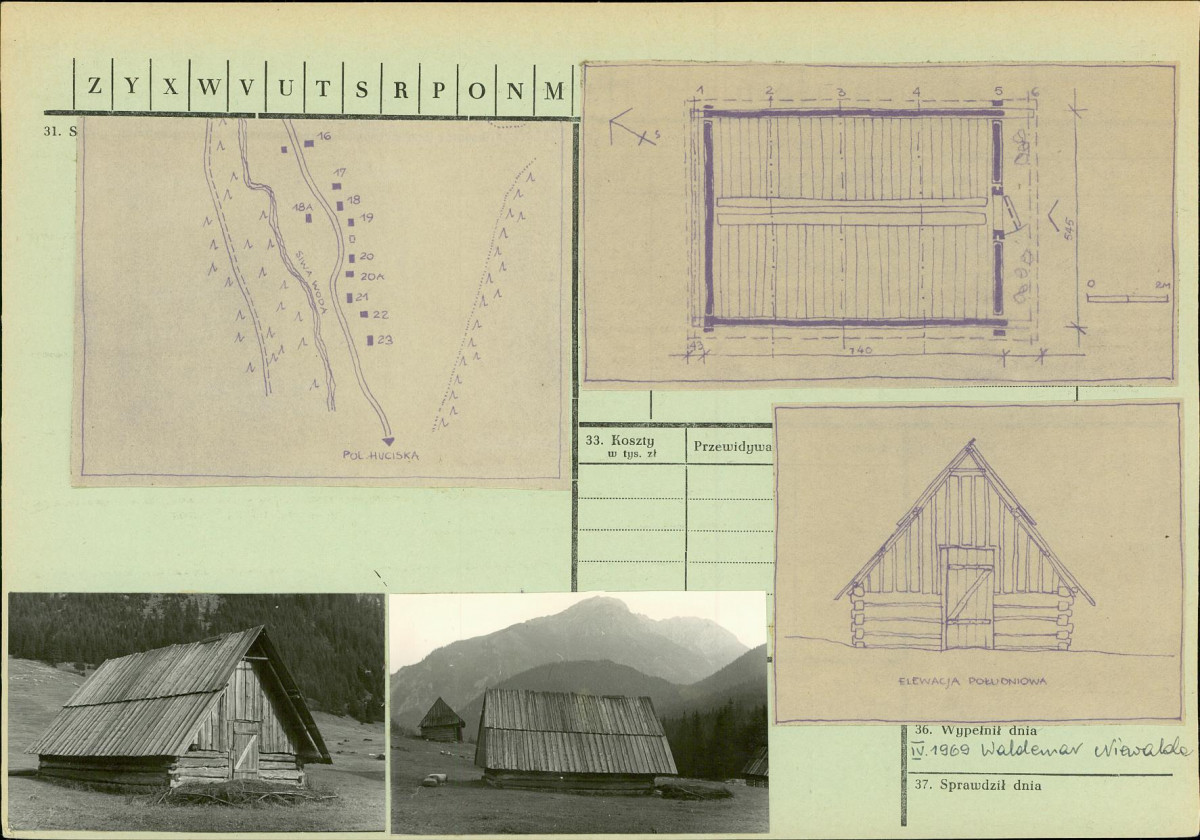 Z Y X W V U T S R P O N M
31. S
16
17
18
18A
19
20
20A
21
22
23
SIWA WODA
POL. HUCISKA
1 2 3 4 5 6
S
545
0 2M
43
740
33. Koszty
w tys. zł
Przewidywa
ELEWACJA POŁUDNIOWA
36. Wypełnił dnia
IV.1969 Waldemar Niewalda
37. Sprawdził dnia